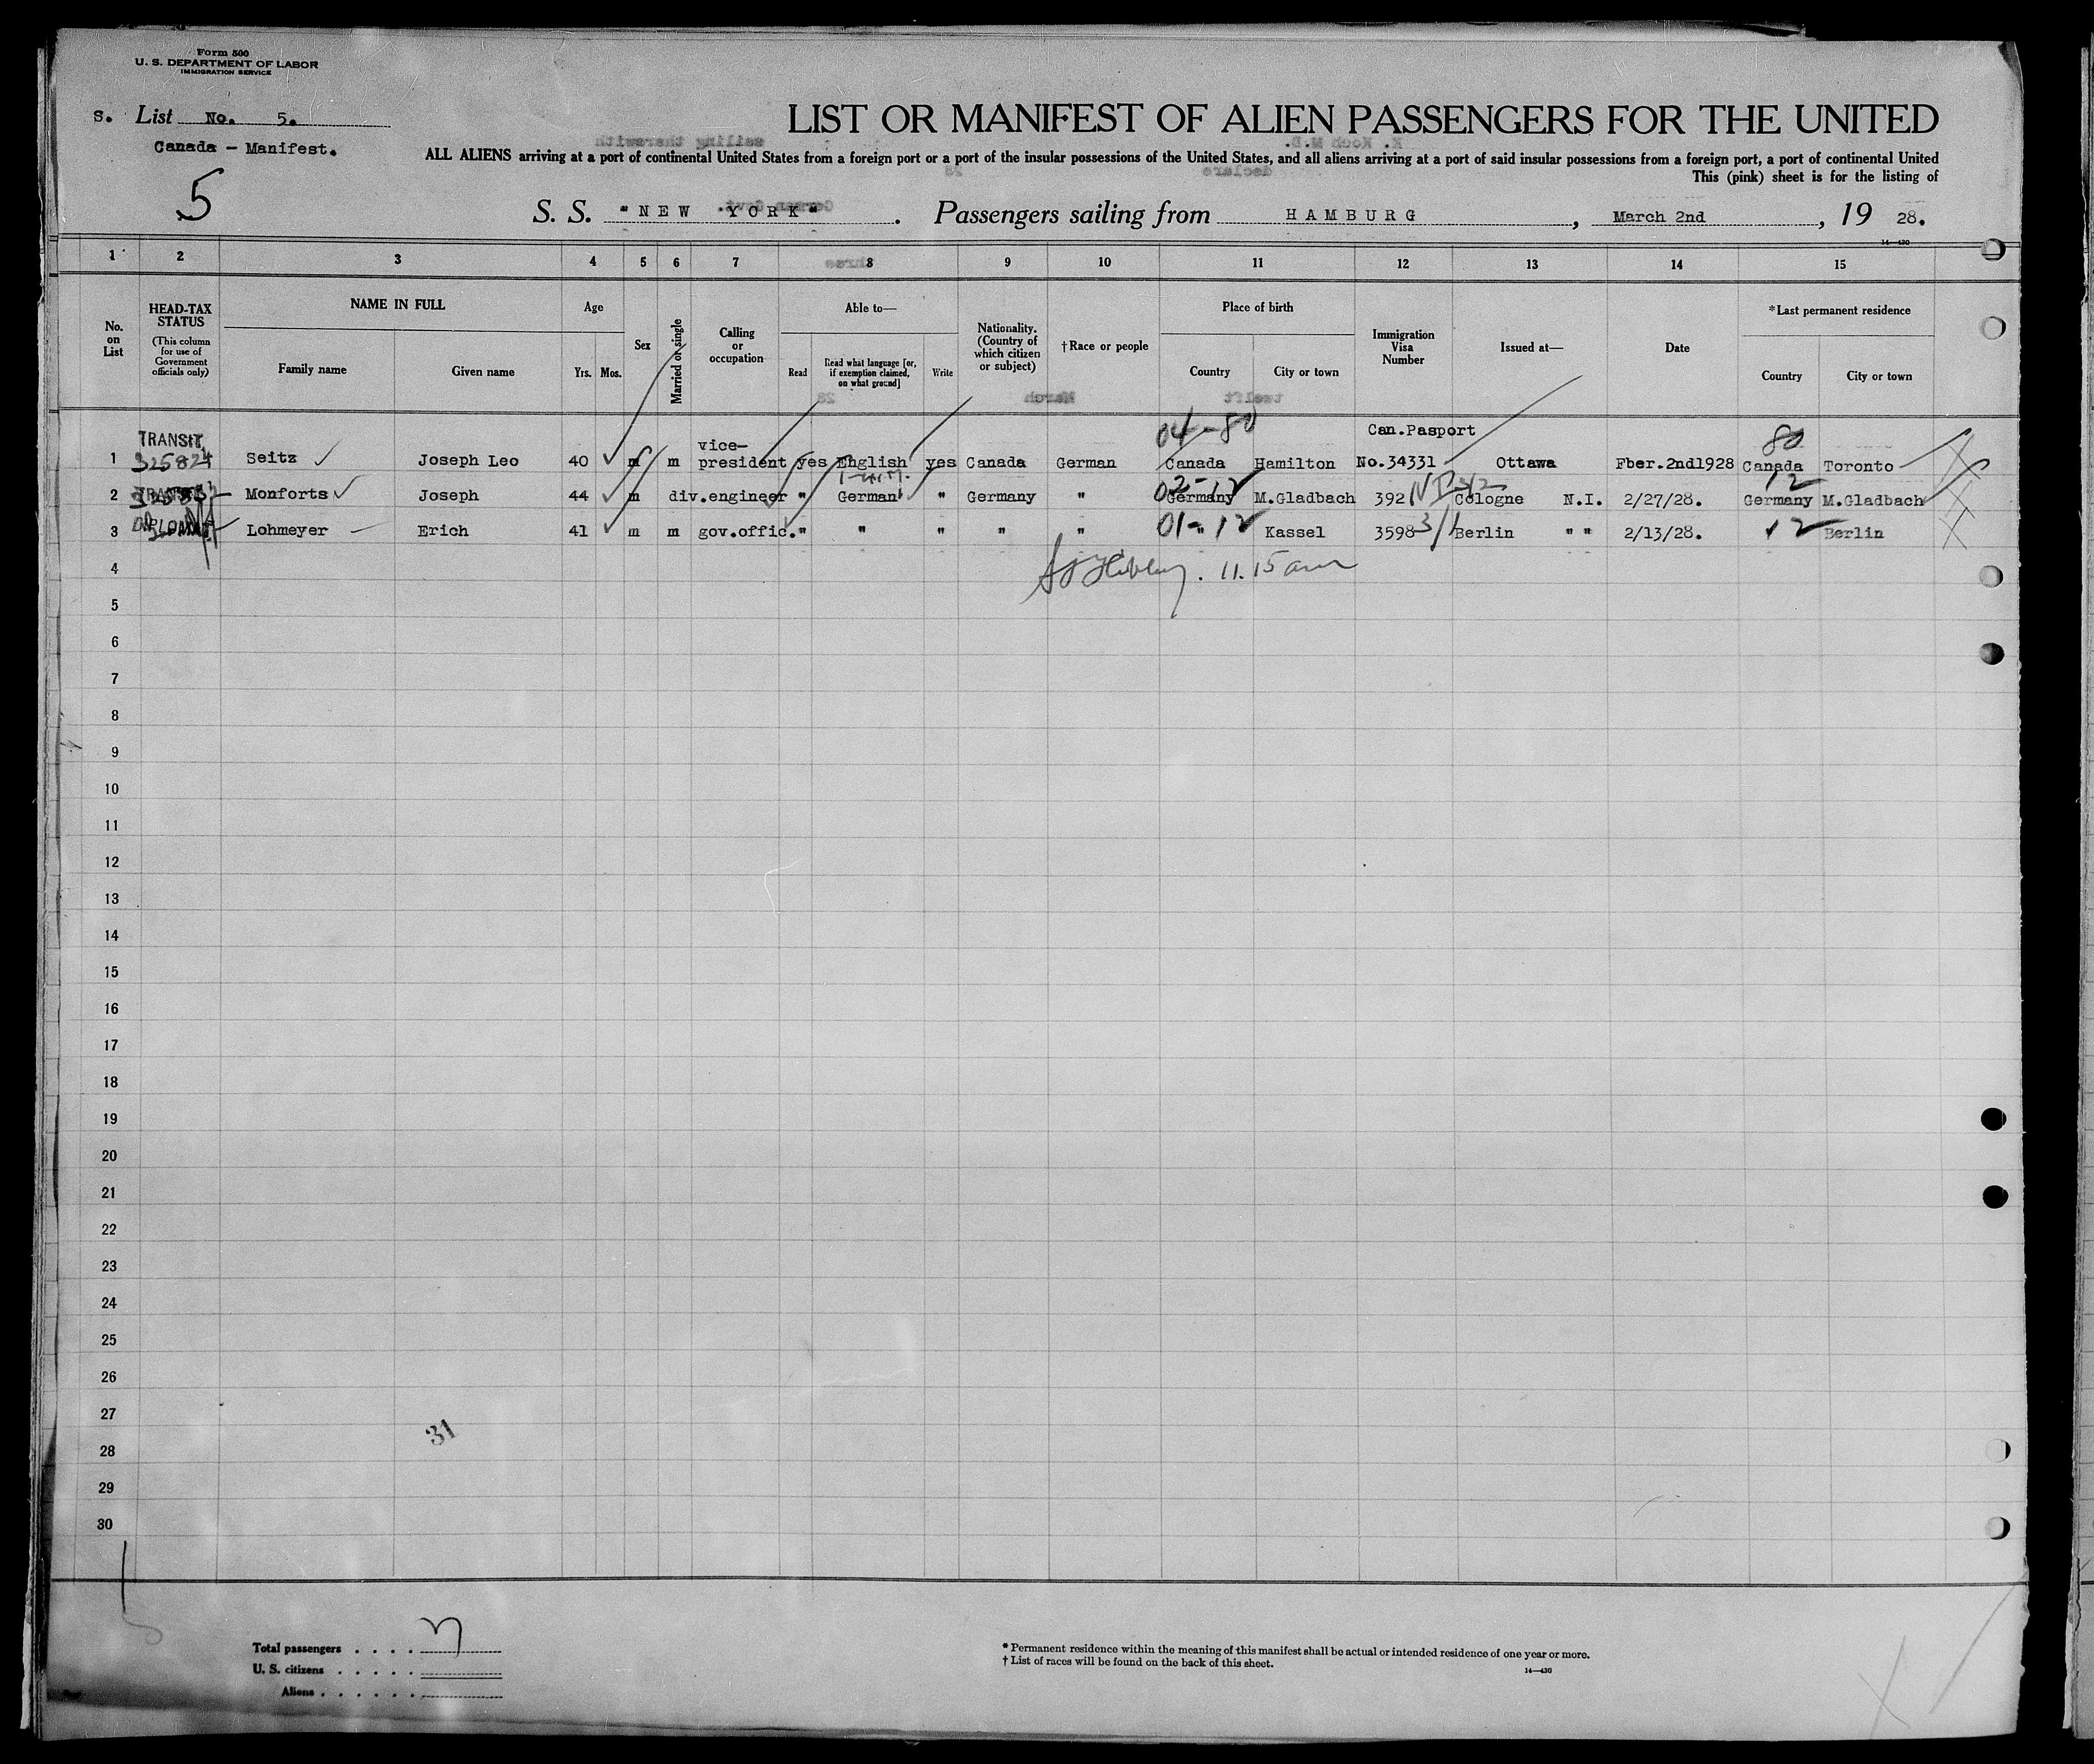 Form 500
U. S. DEPARTMENT OF LABOR
IMMIGRATION SERVICE
S. List No. 5.
Canada - Manifest.
5
LIST OR MANIFEST OF ALIEN PASSENGERS FOR THE UNITED
ALL ALIENS arriving at a port of continental United States from a foreign port or a port of the insular possessions of the United States, and all aliens arriving at a port of said insular possessions from a foreign port, a port of continental United
This (pink) sheet is for the listing of
S. S. "NEW YORK". Passengers sailing from HAMBURG, March 2nd, 19 28.
14—430
1 2 3 4 5 6 7 8 9 10 11 12 13 14 15
No. on List
HEAD-TAX STATUS
(This column for use of Government officials only)
NAME IN FULL
Family name Given name
Age
Yrs. Mos.
Sex
Married or single
Calling or occupation
Able to—
Read
Read what language [or, if exemption claimed, on what ground]
Write
Nationality. (Country of which citizen or subject)
†Race or people
Place of birth
Country City or town
Immigration Visa Number
Issued at—
Date
*Last permanent residence
Country City or town
04-80 Can.Pasport 80
1 TRANSIT 325824 Seitz Joseph Leo 40 m m vice-president yes English yes Canada German Canada Hamilton No.34331 Ottawa Fber.2nd1928 Canada Toronto
02-12 12
2 TRANSIT Monforts Joseph 44 m div.engineer " German " Germany " Germany M.Gladbach 392 Cologne N.I. 2/27/28. Germany M.Gladbach
3 DIPLOMAT Lohmeyer Erich 41 m m gov.offic. " " " " " 01-12 " Kassel 3598 3/1 Berlin " " 2/13/28. 12 Berlin
4 11.15 am
5
6
7
8
9
10
11
12
13
14
15
16
17
18
19
20
21
22
23
24
25
26
27
31
28
29
30
Total passengers
U. S. citizens
Aliens
* Permanent residence within the meaning of this manifest shall be actual or intended residence of one year or more.
† List of races will be found on the back of this sheet.
14—430